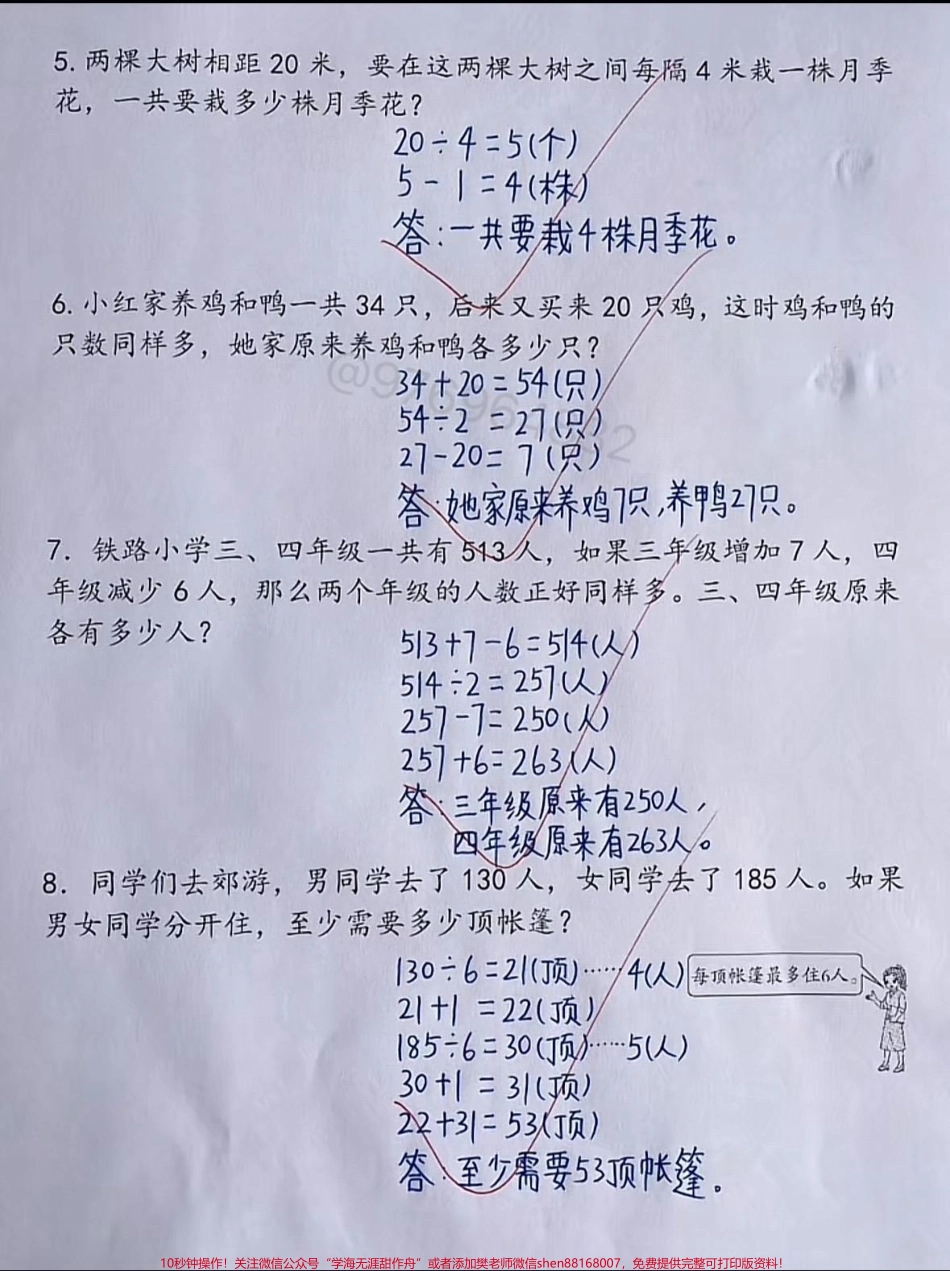 5. 两棵大树相距 20 米，要在这两棵大树之间每隔 4 米栽一株月季
花，一共要栽多少株月季花？
20÷4=5(个)
5-1=4(株)
答:一共要栽4株月季花。
6. 小红家养鸡和鸭一共 34 只，后来又买来 20 只鸡，这时鸡和鸭的
只数同样多，她家原来养鸡和鸭各多少只？
34+20=54(只)
54÷2=27(只)
27-20=7(只)
答:她家原来养鸡7只,养鸭27只。
7. 铁路小学三、四年级一共有 513 人，如果三年级增加 7 人，四
年级减少 6 人，那么两个年级的人数正好同样多。三、四年级原来
各有多少人？
513+7-6=514(人)
514÷2=257(人)
257-7=250(人)
257+6=263(人)
答:三年级原来有250人,
四年级原来有263人。
8. 同学们去郊游，男同学去了 130 人，女同学去了 185 人。如果
男女同学分开住，至少需要多少顶帐篷？
130÷6=21(顶)……4(人)
每顶帐篷最多住6人。
21+1=22(顶)
185÷6=30(顶)……5(人)
30+1=31(顶)
22+31=53(顶)
答:至少需要53顶帐篷。
10秒钟操作！关注微信公众号“学海无涯甜作舟”或者添加樊老师微信shen88168007，免费提供完整可打印版资料！